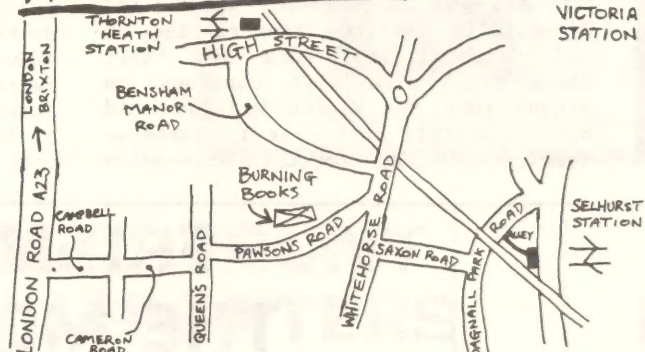 THORNTON
HEATH
STATION
VICTORIA
STATION
HIGH STREET
LONDON
BRIXTON
BENSHAM
MANOR
ROAD
LONDON ROAD A23
BURNING
BOOKS
CAMPBELL
ROAD
PAWSONS ROAD
QUEENS ROAD
CAMERON
ROAD
WHITEHORSE ROAD
SAXON ROAD
DAGNALL PARK ROAD
ALLEY
SELHURST
STATION